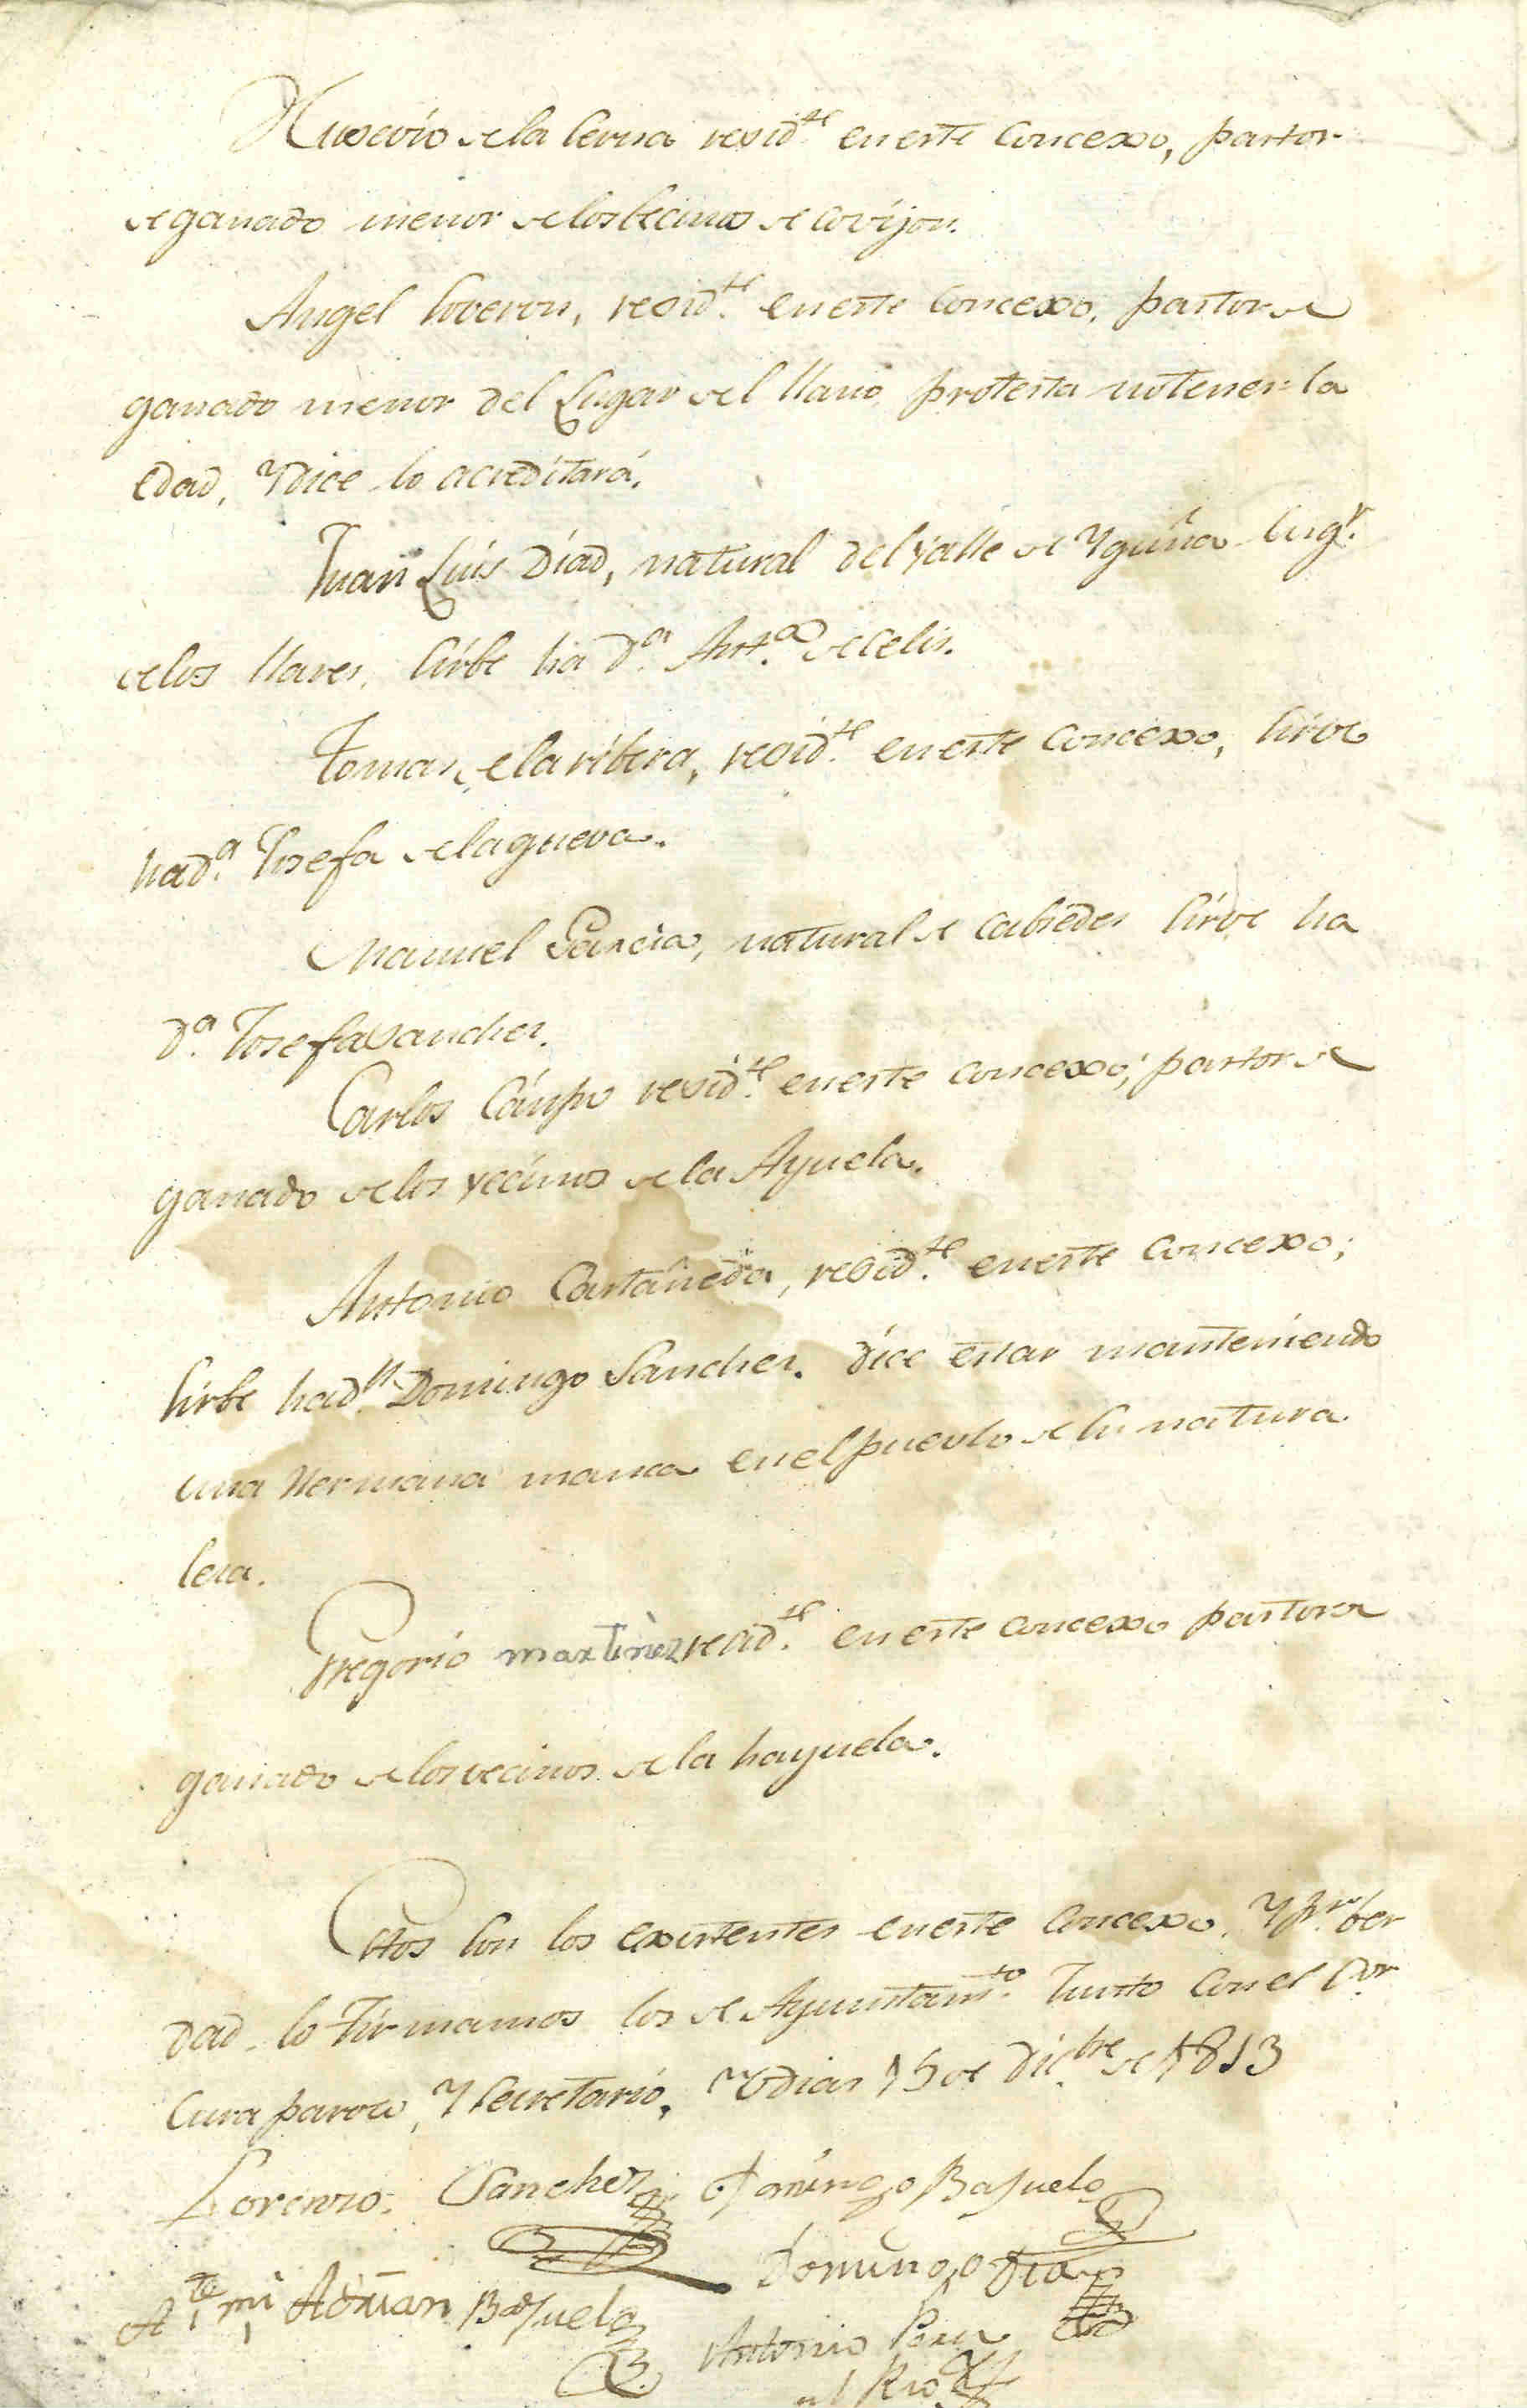 Eusevio de la Cerna resid.te en este Concexo, pastor
de ganado menor de los becinos de Covijon.
Angel Toveron, resid.te en este Concexo, pastor de
ganado menor del Lugar del llano protesta no tener la
edad, Y dice lo acreditará.
Juan Luis Diad, natural del Valle de Yguña lugr.
de los llares, sirbe ha d.a Ant.a de Celis.
Tomas de la ribera, resid.te en este Concexo, sirve
ha d.a Josefa de la gueva.
Manuel Garcia, natural de Cabiedes sirve ha
d.a Josefa Sanches.
Carlos Canpo resid.te en este concexo, pastor de
ganado de los vecinos de la Ayuela.
Antonio Castañeda, resid.te en este Concexo;
sirbe ha d.n Domingo Sanches. dice estar manteniendo
una Hermana manca en el puevlo de su natura
lesa.
Gregorio martinez resid.te en este concexo pastor de
ganado de los vecinos de la hayuela.
Estos son los existentes en este Concexo, Y p.r ber
dad lo firmamos los de Ayuntam.to Junto con el S.or
Cura paroco, Y Secretario, oy dias 15 de Dic.bre de 1813
Lorenzo Sanchez Domingo Bajuelo
Domingo Dias
A.te mi Adrian Bajuelo
Antonio
el Rio